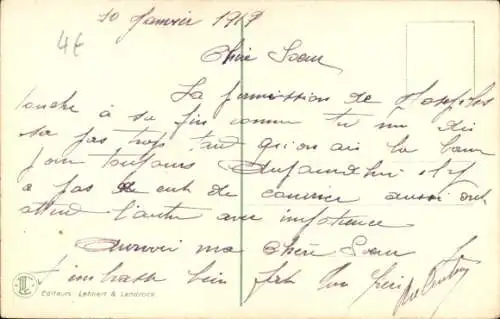 10 Janvier 1919
4€
Chère Soeur
La permission de
touche à sa fin comme tu me dis
pas trop tard qu'on ai la
pour toujours Aujourdhui il y
a pas de de courrier aussi on
attend l'autre avec impatience
Aurevoir ma Chère Soeur
t'embrasse bien fort ton frère
Editeurs Lehnert & Landrock